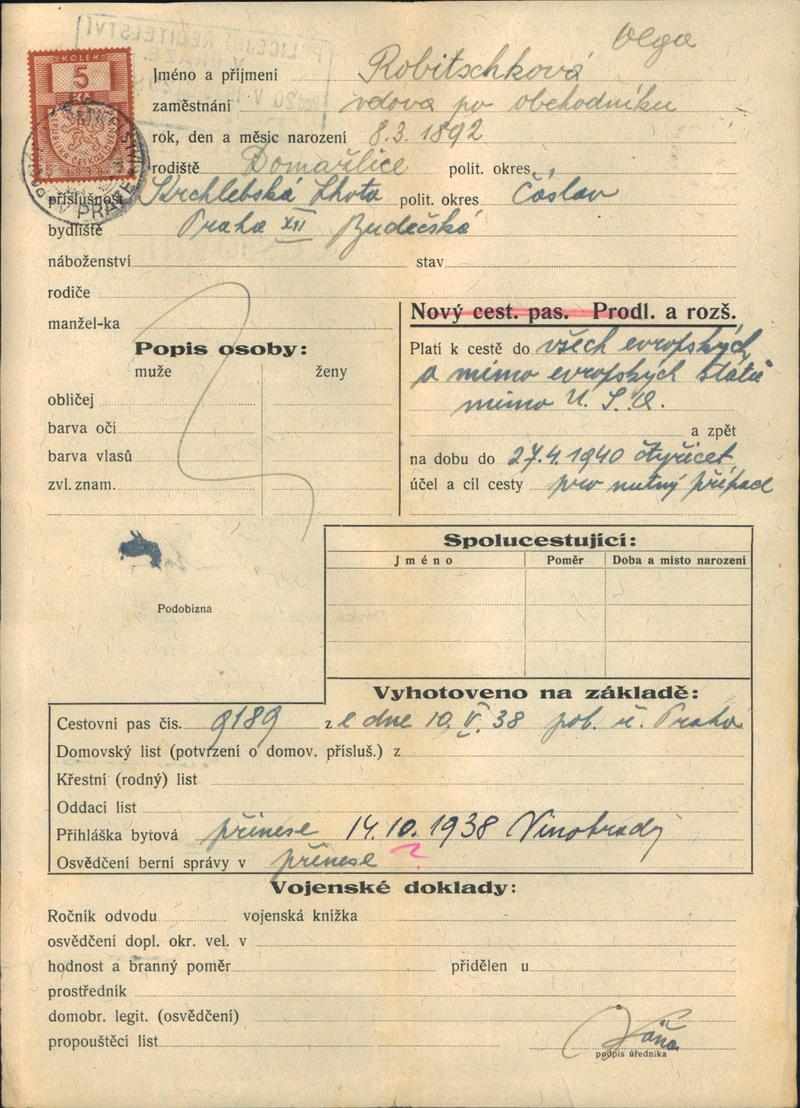 Olga
KOLEK
5
Kč
PRAZE
Jméno a příjmení Robitschková
zaměstnání vdova po obchodníku
rok, den a měsíc narození 8.3.1892
rodiště Domašlice polit. okres
příslušnost Krchlebská Lhota polit. okres Čáslav
bydliště Praha XII Budečská
náboženství stav
rodiče
manžel-ka
Popis osoby:
muže ženy
obličej
barva očí
barva vlasů
zvl. znam.
Nový cest. pas. Prodl. a rozš.
Platí k cestě do všech evropských
a mimo evropských států
mimo U. S. A.
a zpět
na dobu do 27.4.1940 čtyřicet
účel a cíl cesty pro nutný případ
Podobizna
Spolucestující:
Jméno Poměr Doba a misto narození
Vyhotoveno na základě:
Cestovní pas čís. 9189 z e dne 10.V.38 pol. ř. Praha
Domovský list (potvrzení o domov. přísluš.) z
Křestní (rodný) list
Oddací list
Přihláška bytová přinese 14.10.1938 Vinohrady
Osvědčení berní správy v přinese ?
Vojenské doklady:
Ročník odvodu vojenská knížka
osvědčení dopl. okr. vel. v
hodnost a branný poměr přidělen u
prostředník
domobr. legit. (osvědčení)
propouštěcí list
podpis úředníka